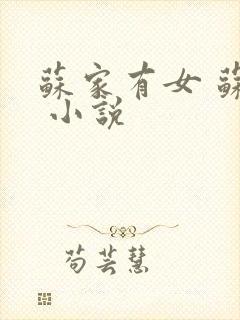 蘇家有女 蘇
小說
苟芸慧